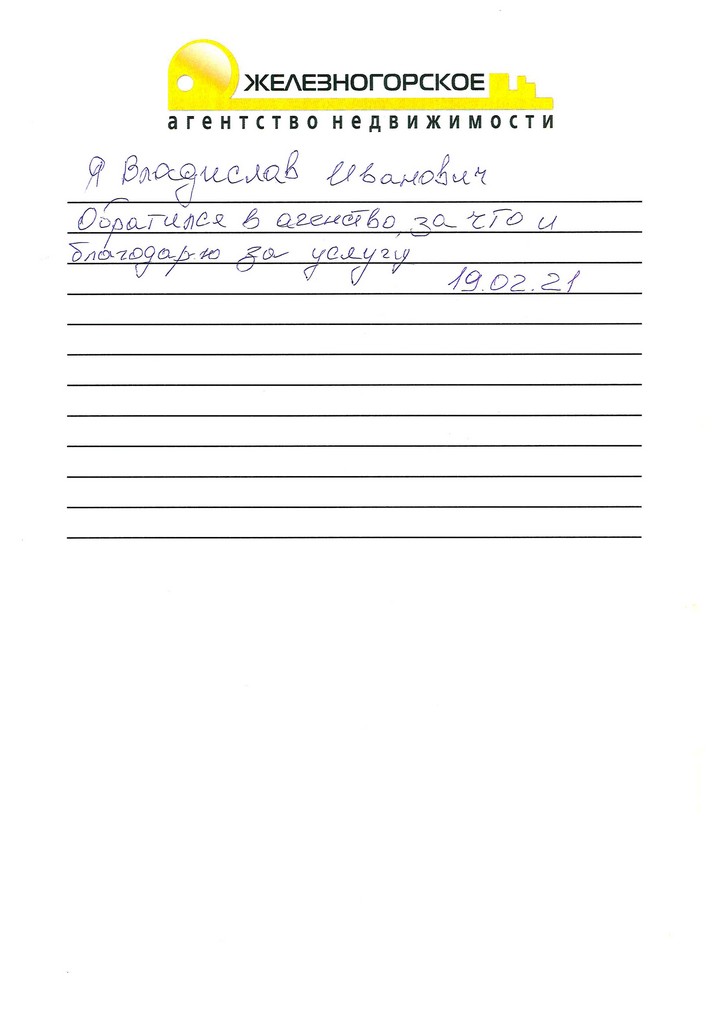 ЖЕЛЕЗНОГОРСКОЕ
агентство недвижимости
Я Владислав Иванович
Обратился в агенство, за что и
благодарю за услугу
19.02.21